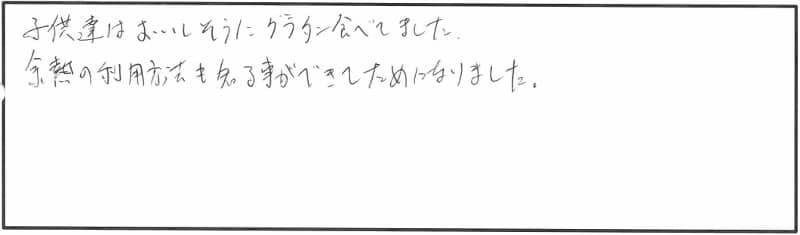 子供達はおいしそうにグラタン食べてました.
余熱の利用方法も知る事ができてためになりました。